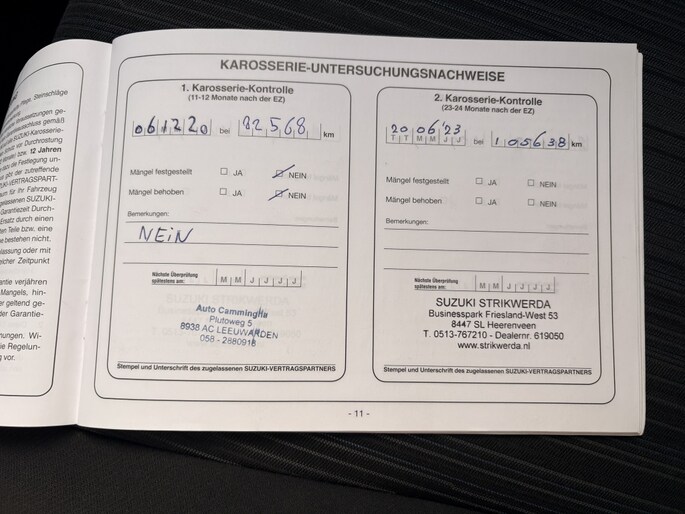 he, Pflege, Steinschläge
ssetzungen ge-
ausschluss gemäß
e SUZUKI-Karosserie-
Durchrostung
12 Jahren
die Festlegung un-
gibt der zutreffende
SUZUKI-VERTRAGSPART-
um für Ihr Fahrzeug
SUZUKI-
Garantiezeit Durch-
Ersatz durch einen
Teilen bzw. eine
e bestehen nicht.
lassung oder mit
reicher Zeitpunkt
antie verjähren
Mangels, hin-
er geltend ge-
der Garantie-
nungen. Wi-
ie Regelun-
g vor.
KAROSSERIE-UNTERSUCHUNGSNACHWEISE
1. Karosserie-Kontrolle
(11-12 Monate nach der EZ)
061220 bei 82568 km
Mängel festgestellt JA NEIN
Mängel behoben JA NEIN
Bemerkungen:
NEiN
Nächste Überprüfung
spätestens am: M M J J J J
Auto Camminga
Plutoweg 5
8938 AC LEEUWARDEN
058 - 2880918
Stempel und Unterschrift des zugelassenen SUZUKI-VERTRAGSPARTNERS
2. Karosserie-Kontrolle
(23-24 Monate nach der EZ)
20 06 '23 bei 105638 km
T T M M J J
Mängel festgestellt JA NEIN
Mängel behoben JA NEIN
Bemerkungen:
Nächste Überprüfung
spätestens am: M M J J J J
SUZUKI STRIKWERDA
Businesspark Friesland-West 53
8447 SL Heerenveen
T. 0513-767210 - Dealernr. 619050
www.strikwerda.nl
Stempel und Unterschrift des zugelassenen SUZUKI-VERTRAGSPARTNERS
- 11 -